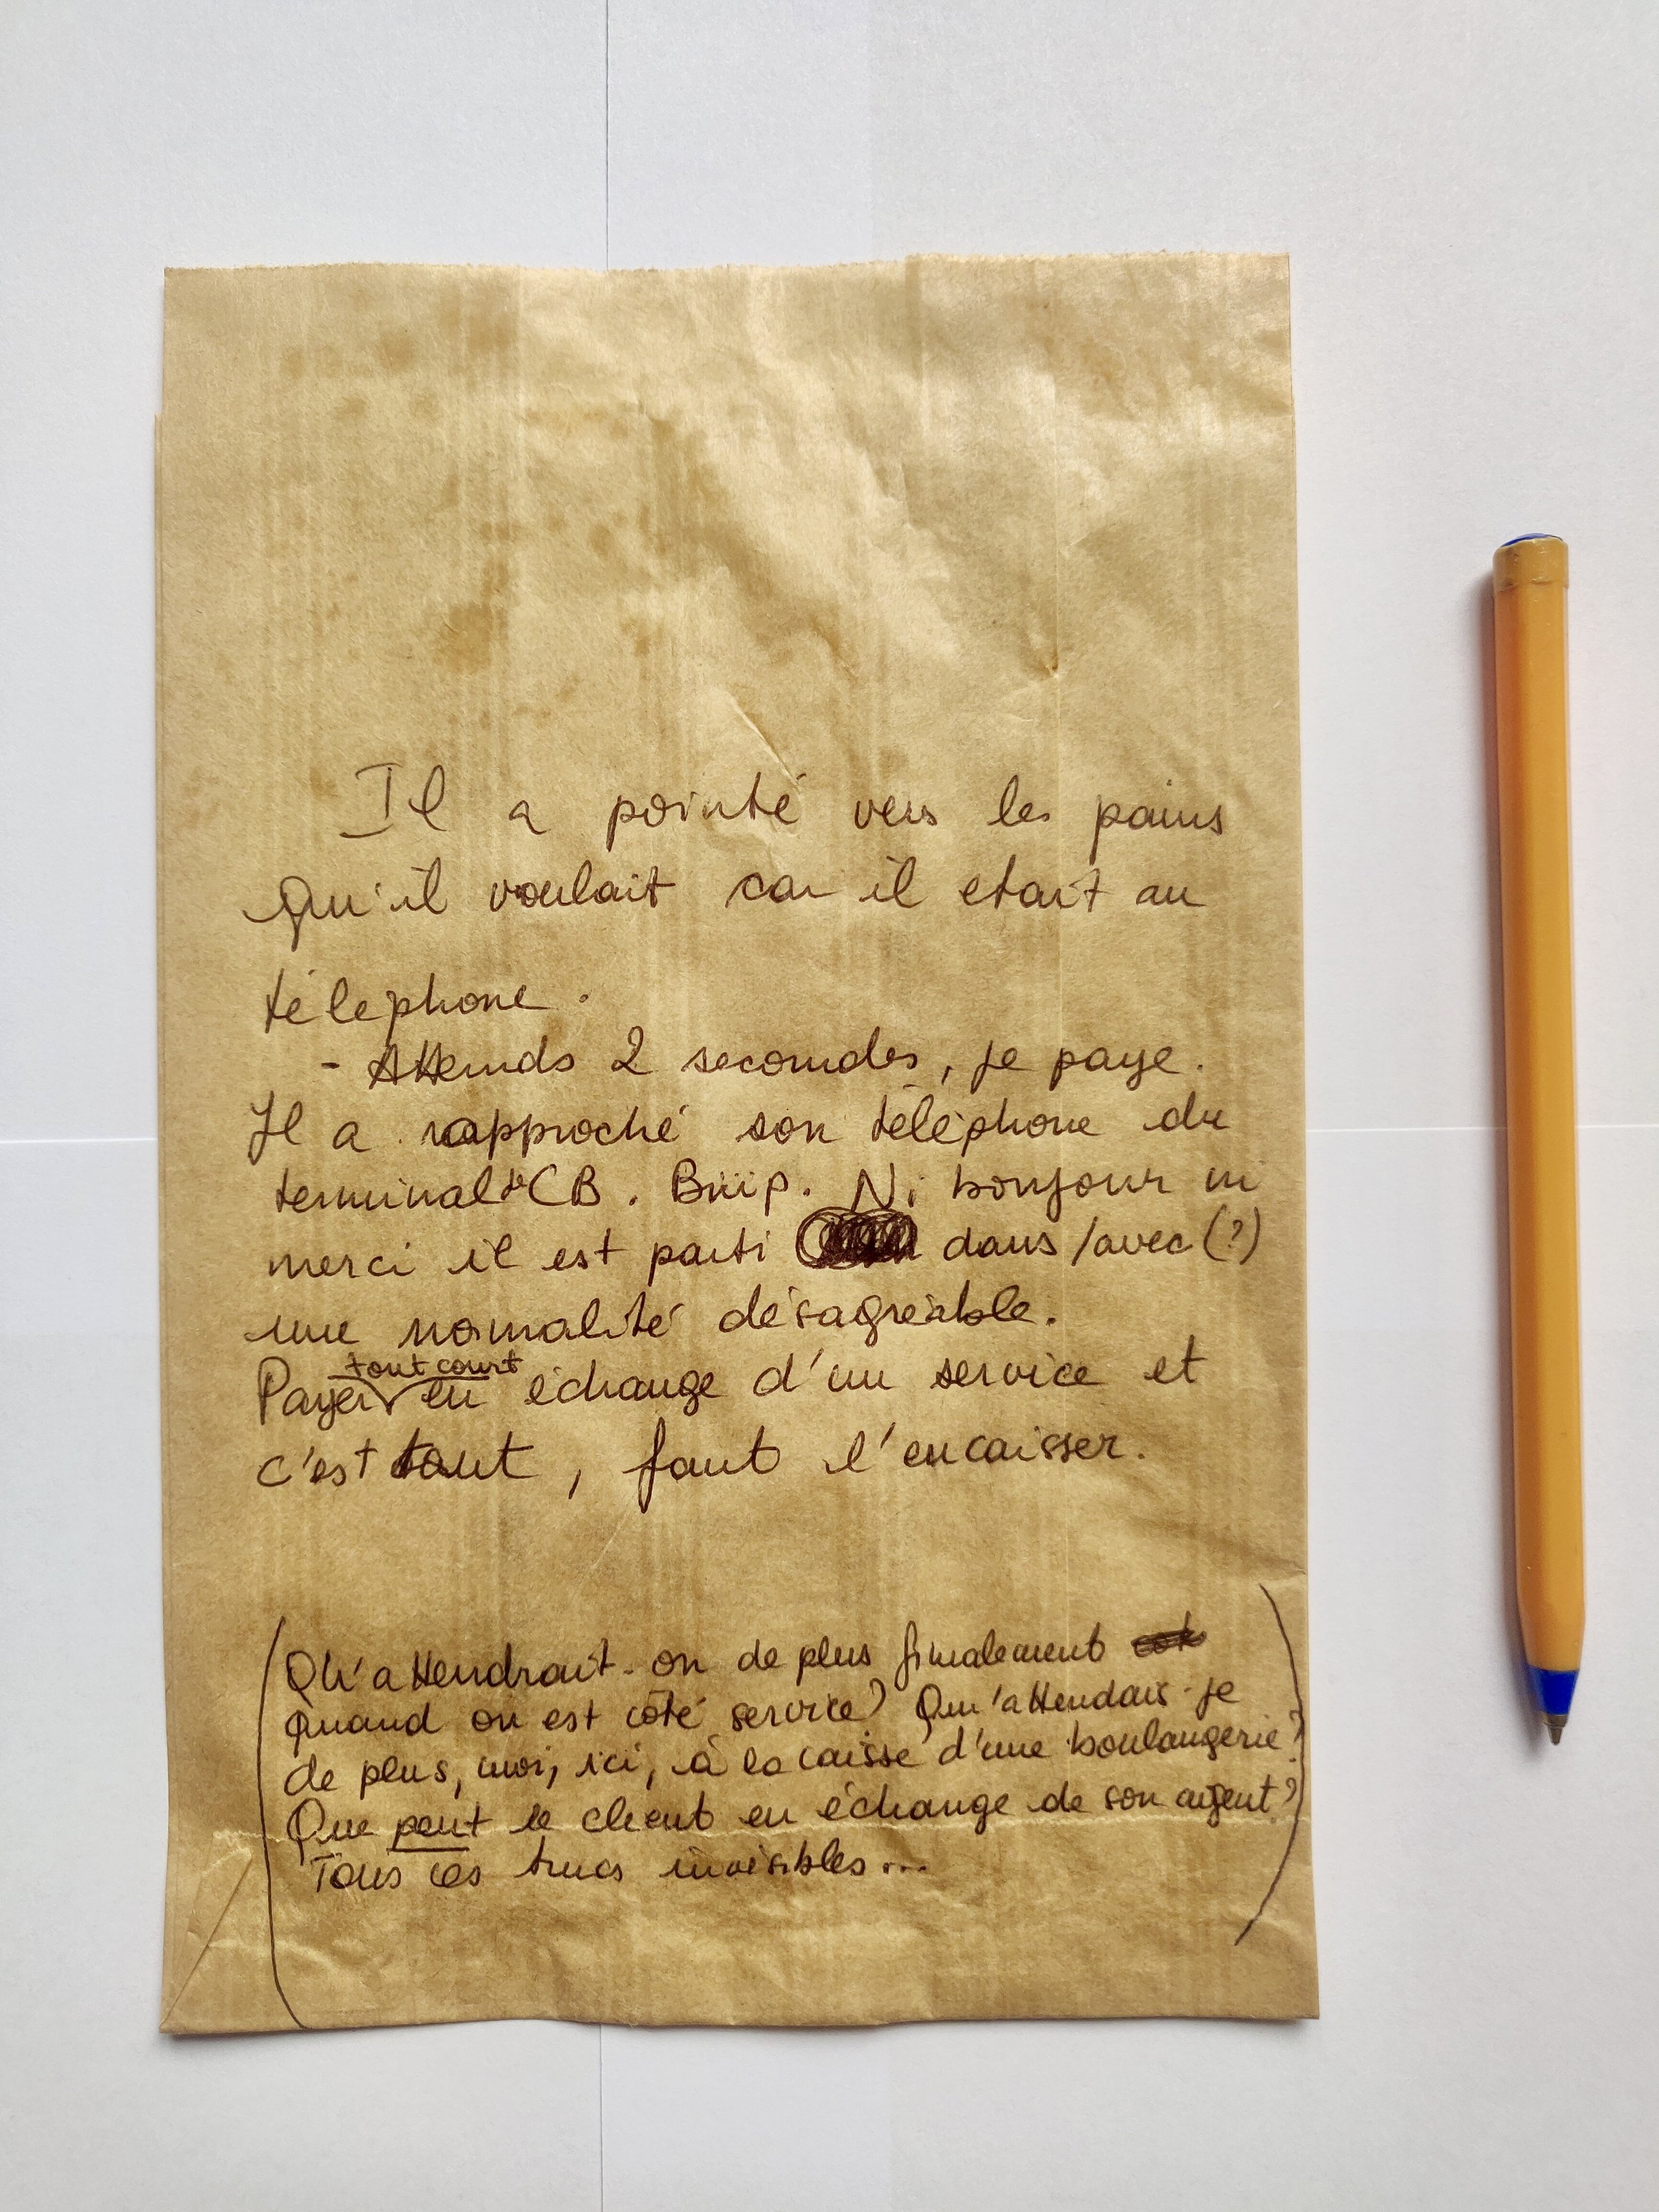 Il a pointé vers les pains
Qu'il voulait car il etait au
téléphone.
- Attends 2 secondes, je paye.
Il a rapproché son téléphone du
terminal de CB. Briip. Ni bonjour ni
merci il est parti dans/avec (?)
une normalité désagréable.
tout court
Payer en échange d'un service et
c'est tout, faut l'encaisser.
(Qu'attendrait-on de plus finalement
quand on est côté service? Qu'attendais-je
de plus, moi, ici, à la caisse d'une boulangerie?
Que peut le client en échange de son argent?
Tous ces trucs invisibles...)